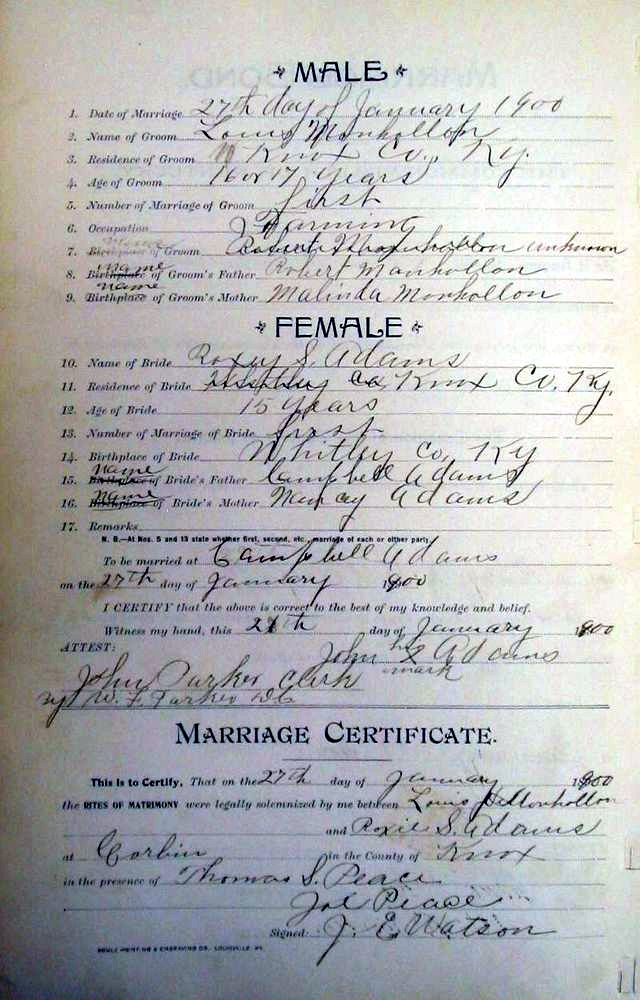 MALE
1. Date of Marriage 27th day of January 1900
2. Name of Groom Louis Monhollon
3. Residence of Groom Knox Co., Ky.
4. Age of Groom 16 or 17 years
5. Number of Marriage of Groom first
6. Occupation Farming
7. Birthplace of Groom Robert Monhollon unknown
8. Birthplace Name of Groom's Father Robert Monhollon
9. Birthplace name of Groom's Mother Malinda Monhollon
FEMALE
10. Name of Bride Roxey S. Adams
11. Residence of Bride Knox Co. Ky.
12. Age of Bride 15 years
13. Number of Marriage of Bride first
14. Birthplace of Bride Whitley Co. Ky
15. Birthplace name of Bride's Father Campbell Adams
16. Birthplace Name of Bride's Mother Nancy Adams
17. Remarks
N. B.—At Nos. 5 and 13 state whether first, second, etc., marriage of each or either party.
To be married at Campbell Adams
on the 27th day of January 1900
I CERTIFY that the above is correct to the best of my knowledge and belief.
Witness my hand, this day of January 1900
ATTEST:
John his Adams
mark
John Parker Clerk
by W. F. Parker DC
MARRIAGE CERTIFICATE.
This is to Certify, That on the 27th day of January 1900
the RITES OF MATRIMONY were legally solemnized by me between Louis Monhollon
and Roxie S. Adams
at Corbin in the County of Knox
in the presence of Thomas S. Peace
Joe Peace
Signed: J. E Watson